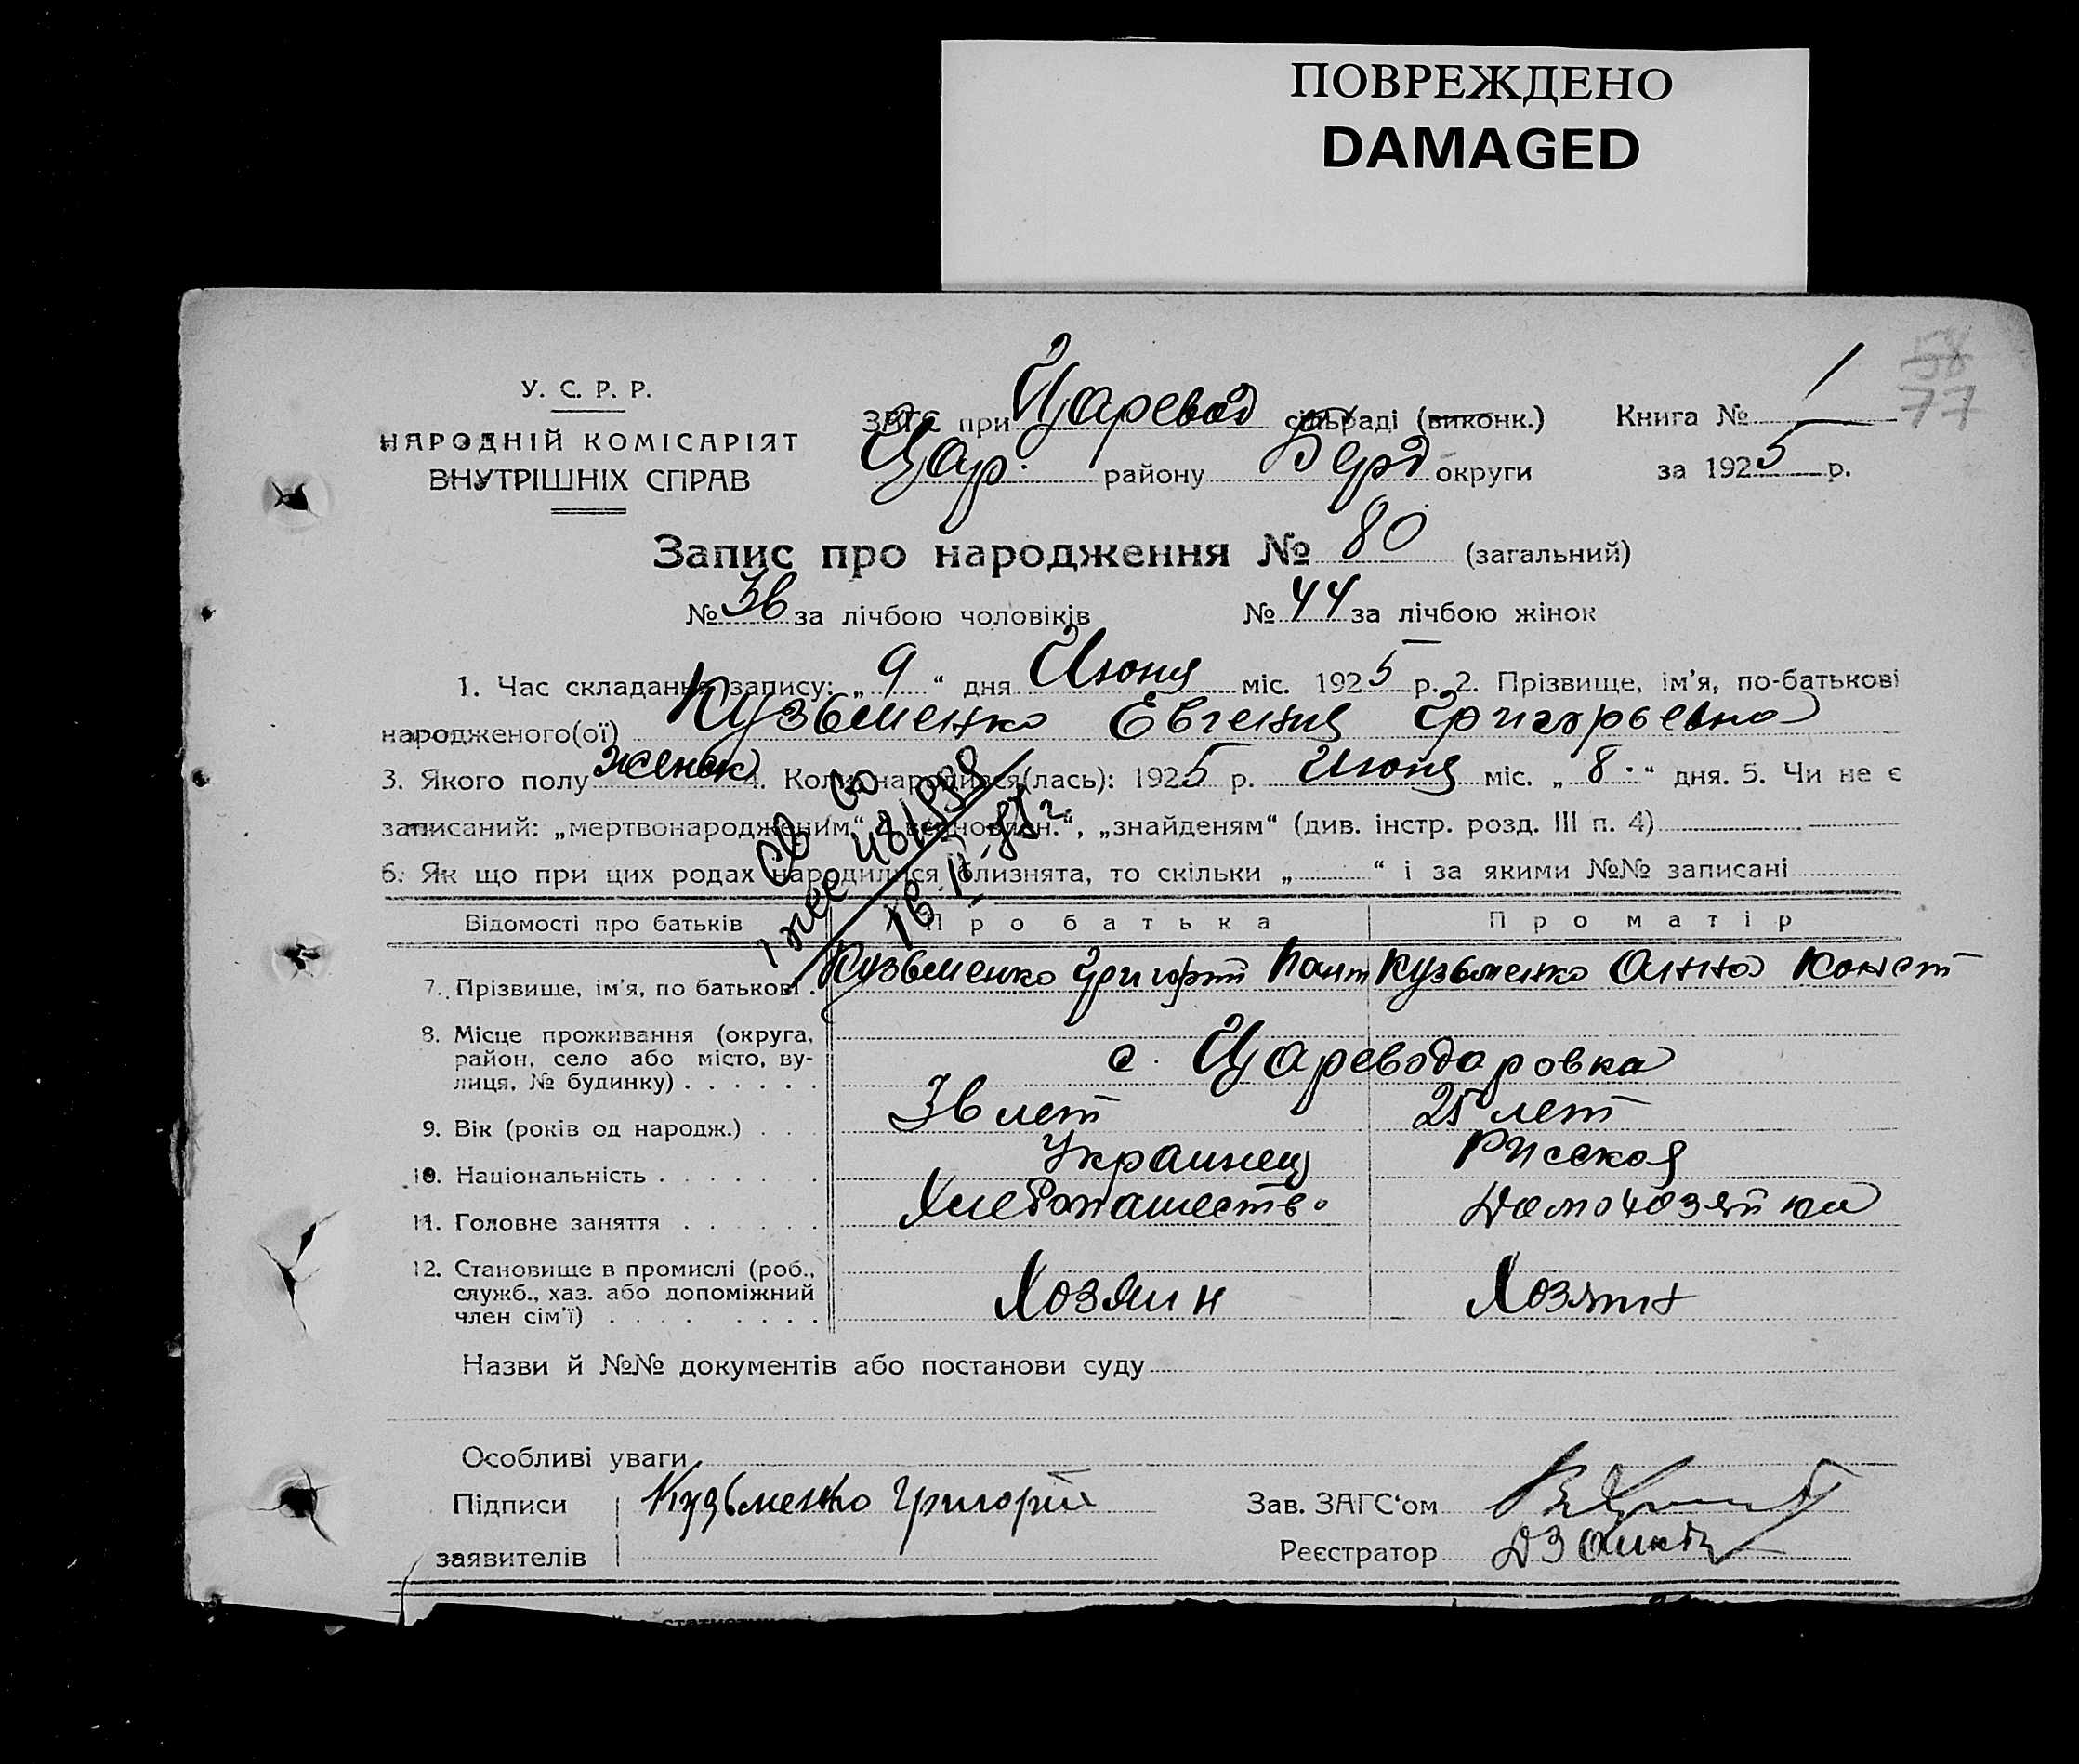 ПОВРЕЖДЕНО
DAMAGED
58
77
У. С. Р. Р.
НАРОДНІЙ КОМІСАРІЯТ
ВНУТРІШНІХ СПРАВ
ЗАГС при Царевод сільраді (виконк.) Книга № 1
Цар. району Берд округи за 1925 р.
Запис про народження № 80 (загальний)
№ 36 за лічбою чоловіків № 44 за лічбою жінок
1. Час складання запису: „ 9 “ дня Июня міс. 1925 р. 2. Прізвище, ім'я, по-батькові
народженого(ої) Кузьменко Евгения Григорьевна
3. Якого полу женск 4. Коли народився(лась): 1925 р. Июня міс. „ 8. “ дня. 5. Чи не є
записаний: „мертвонародженим“, „ “, „знайденям“ (див. інстр. розд. III п. 4)
6. Як що при цих родах народилися близнята, то скільки „ “ і за якими №№ записані
Відомості про батьків Про батька Про матір
7. Прізвище, ім'я, по батькові . Кузьменко Григорий Пант Кузьменко Анна Конст
8. Місце проживання (округа,
район, село або місто, ву-
лиця, № будинку) . . . . . . с. Цареводаровка
9. Вік (років од народж.) . . . 36 лет 25 лет
10. Національність . . . . . . . Украинец Русская
11. Головне заняття . . . . . . Хлебопашество Домохозяйка
12. Становище в промислі (роб.,
служб., хаз. або допоміжний
член сім'ї) . . . . . . . . Хозяин Хозяин
Назви й №№ документів або постанови суду
Особливі уваги
Підписи Кузьменко Григорий Зав. ЗАГС‘ом
заявителів Реєстратор